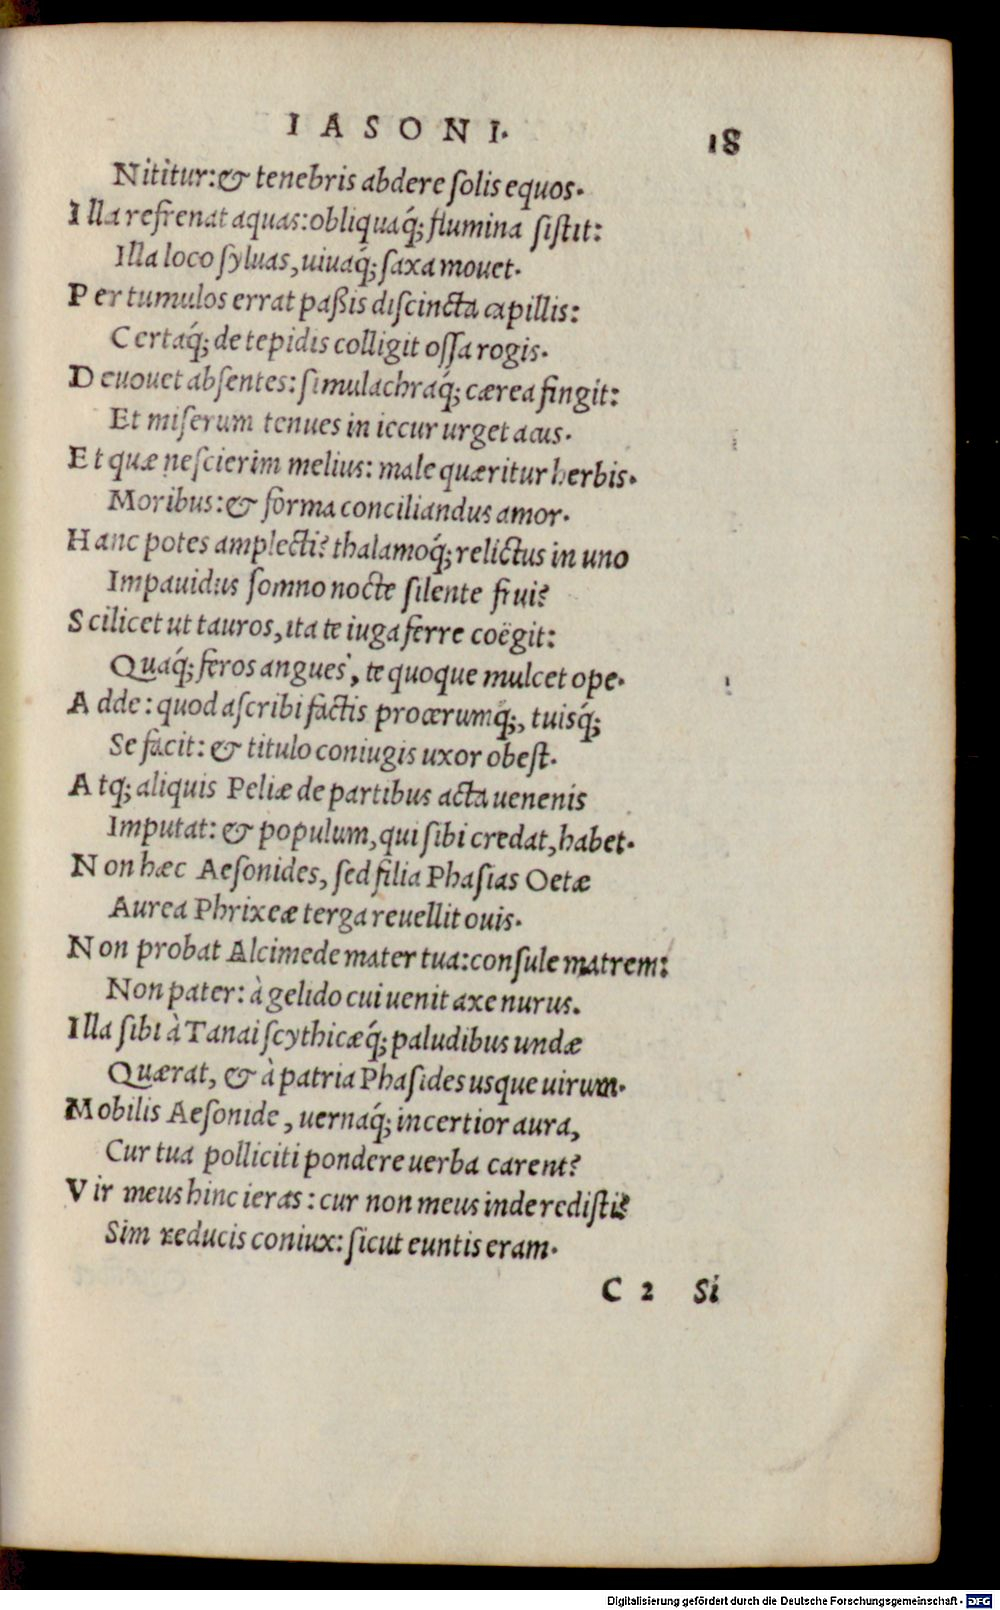 IASONI.
18
Nititur: & tenebris abdere ſolis equos.
Illa refrenat aquas: obliquaq́; flumina ſiſtit:
Illa loco ſyluas, uiuaq́; ſaxa mouet.
Per tumulos errat paßis diſcincta capillis:
Certaq́; de tepidis colligit oſſa rogis.
Deuouet abſentes: ſimulachraq́; cærea fingit:
Et miſerum tenues in iecur urget acus.
Et quæ neſcierim melius: male quæritur herbis.
Moribus: & forma conciliandus amor.
Hanc potes amplecti? thalamoq́; relictus in uno
Impauidus ſomno nocte ſilente frui?
Scilicet ut tauros, ita te iuga ferre coëgit:
Quaq́; feros angues, te quoque mulcet ope.
Adde: quod aſcribi factis procerumq́;, tuisq́;
Se facit: & titulo coniugis uxor obeſt.
Atq; aliquis Peliæ de partibus acta uenenis
Imputat: & populum, qui ſibi credat, habet.
Non hæc Aeſonides, ſed filia Phaſias Oetæ
Aurea Phrixeæ terga reuellit ouis.
Non probat Alcimede mater tua: conſule matrem:
Non pater: à gelido cui uenit axe nurus.
Illa ſibi à Tanai ſcythicæq́; paludibus undæ
Quærat, & à patria Phaſides usque uirum.
Mobilis Aeſonide, uernaq́; incertior aura,
Cur tua polliciti pondere uerba carent?
Vir meus hinc ieras: cur non meus inde rediſti?
Sim reducis coniux: ſicut euntis eram.
C 2 Si
Digitalisierung gefördert durch die Deutsche Forschungsgemeinschaft - DFG